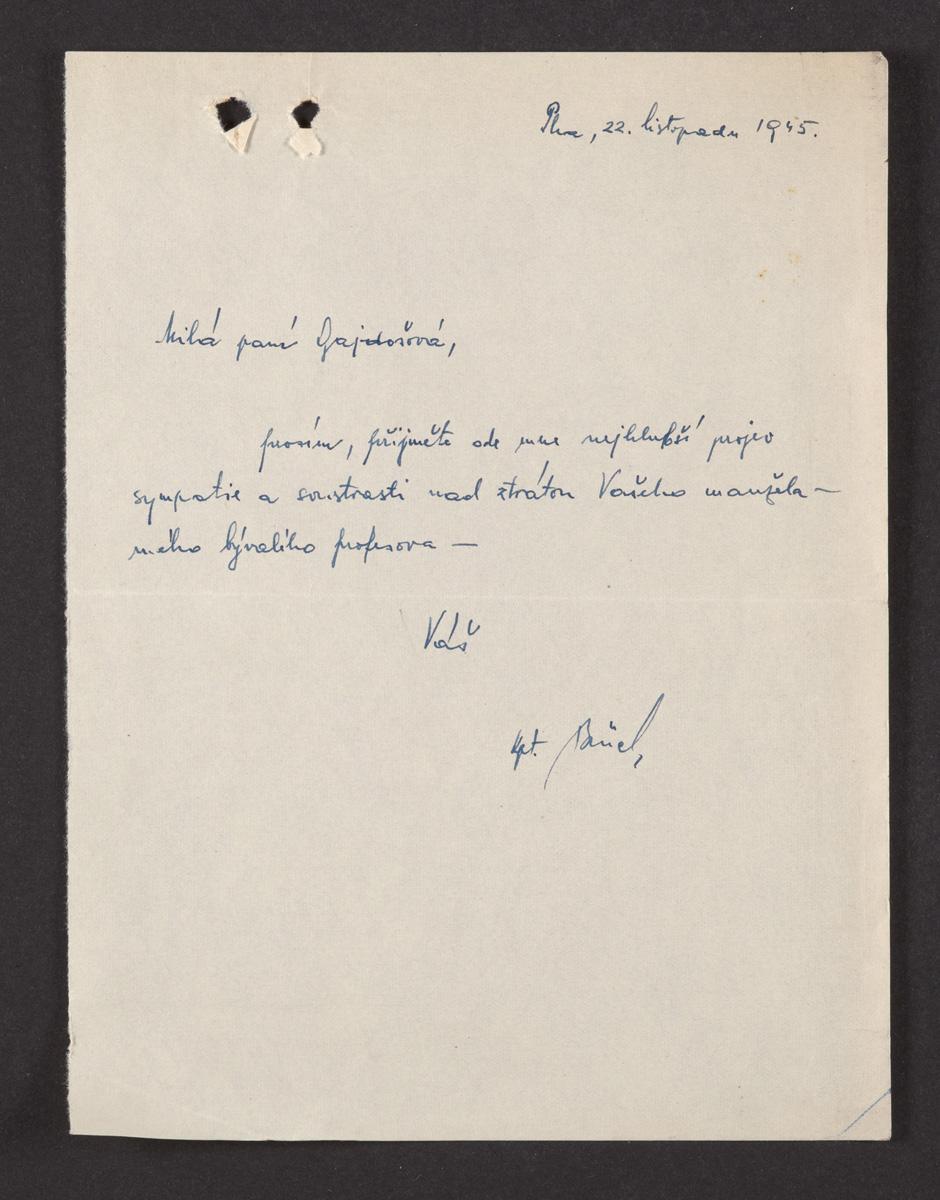 Pha, 22. listopadu 1945.
Milá paní Gajdošová,
prosím, přijměte ode mne nejhlubší projev
sympatie a soustrasti nad ztrátou Vašeho manžela –
mého bývalého profesora —
Váš
kpt.